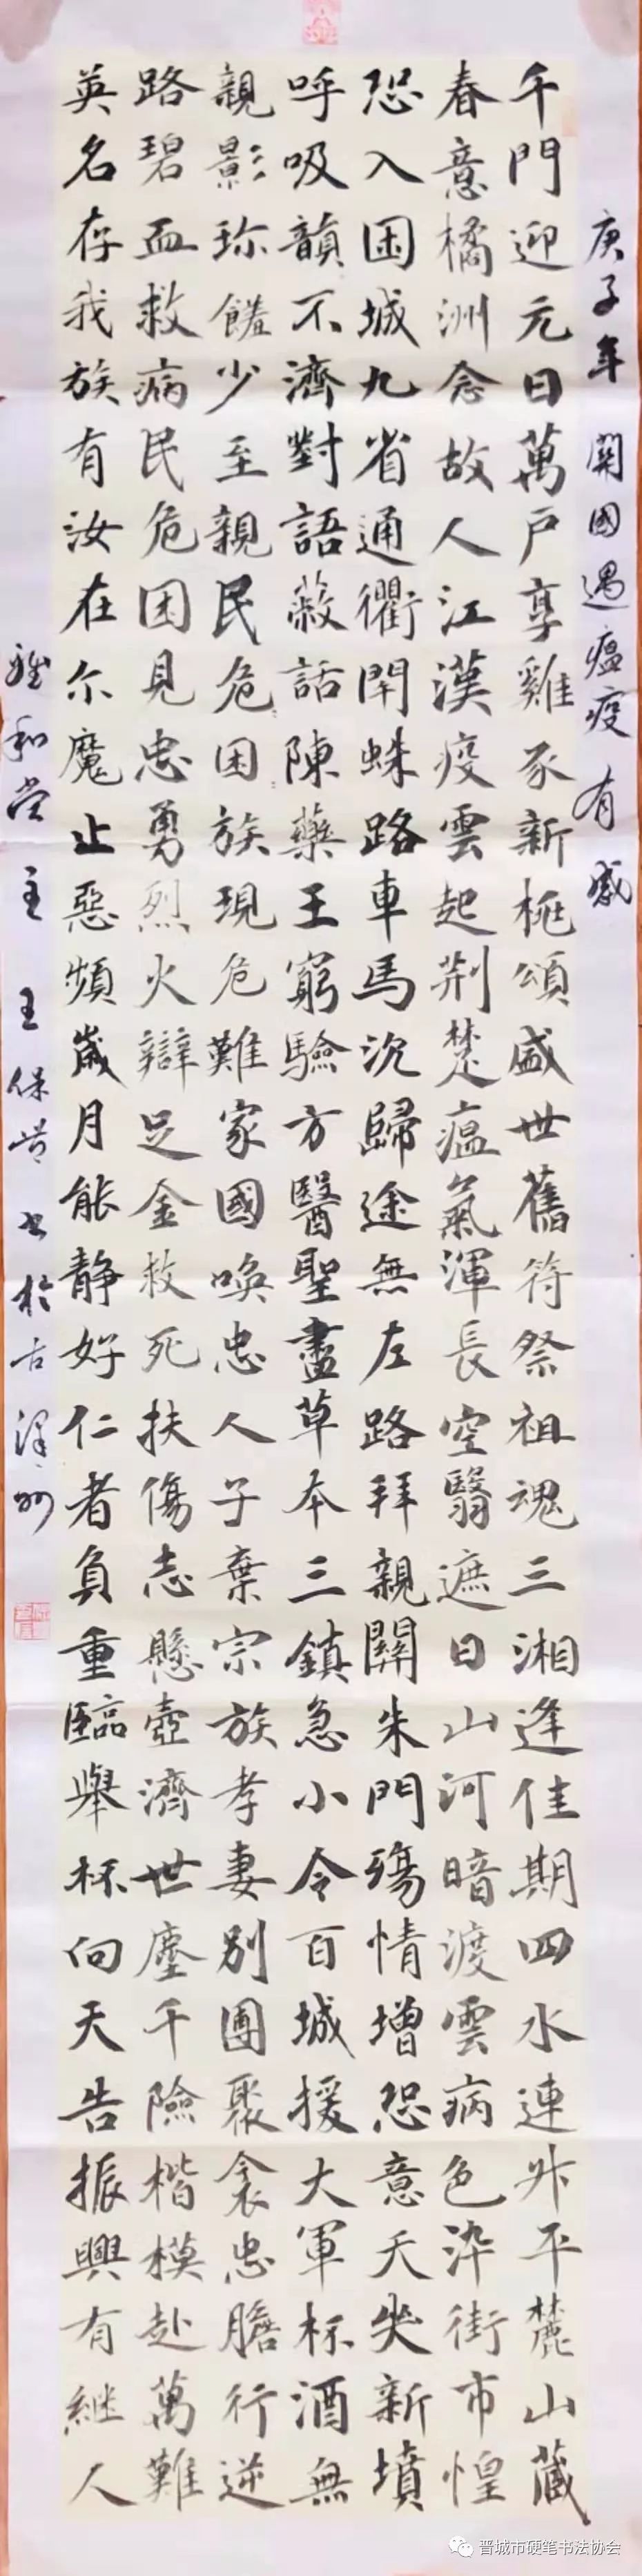 庚子年 國遇瘟疫有感
千門迎元日萬戶享雞豕新桃頌盛世舊符祭祖魂三湘逢佳期四水連升平麓山藏
春意橘洲念故人江漢疫雲起荆楚瘟氣渾長空翳遮日山河暗渡雲病色染街市惶
恐入困城九省通衢閉蛛路車馬沉歸途無左路拜親關朱門殤情增恐意天新墳
呼吸韻不濟對語蔽話陳藥王窮驗方醫聖盡草本三鎮急小令百城援大軍杯酒無
親影珎饈少至親民危困族現危難家國喚忠人子棄宗族孝妻別團聚衾忠膽行逆
路碧血救病民危困見忠勇烈火辯足金救死扶傷志懸壺濟世塵千險楷模赴萬難
英名存我族有汝在尔魔止惡頻歲月能静好仁者負重臨舉杯向天告振興有継人
和堂主 王保书於古泽州
晋城市硬笔书法协会